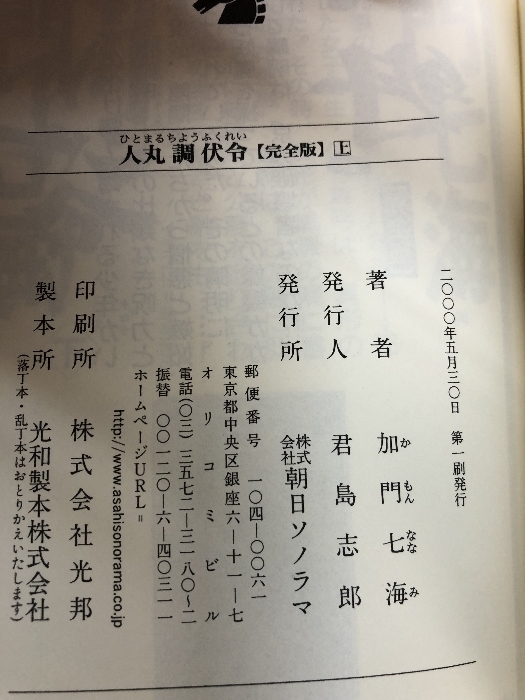 人丸調伏令【完全版】上
ひとまるちようふくれい
二〇〇〇年五月三〇日 第一刷発行
著者 加門七海
かもんななみ
発行人 君島志郎
発行所 株式会社朝日ソノラマ
郵便番号 一〇四―〇〇六一
東京都中央区銀座六―十一―七
オリコミビル
電話(〇三)三五七二―三一八〇〜二
振替 〇〇一二〇―六―四〇三一一
ホームページURL=
http://www.asahisonorama.co.jp
印刷所 株式会社光邦
製本所 光和製本株式会社
(落丁本・乱丁本はおとりかえいたします)